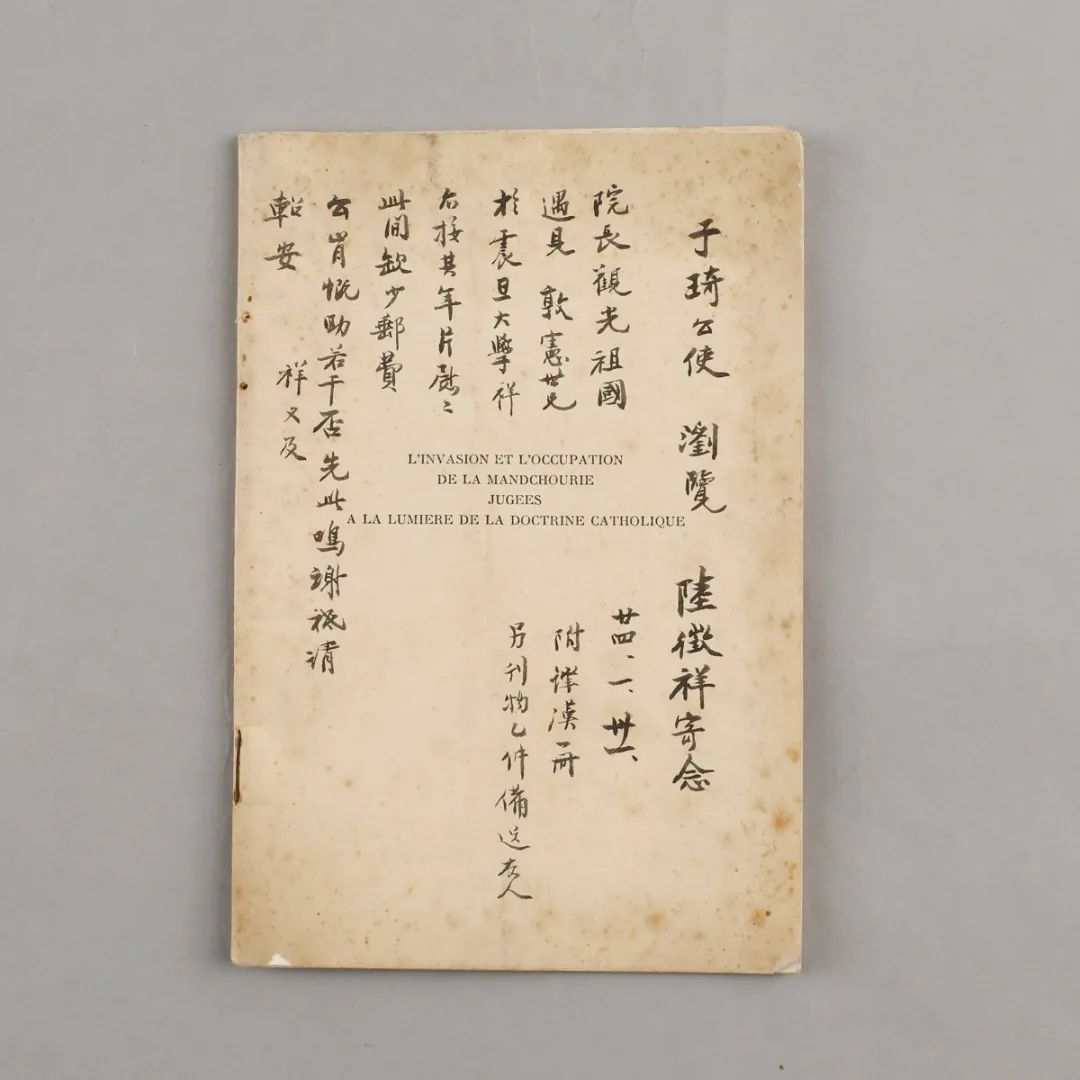 子琦公使 瀏覽 陸徵祥寄念
廿四、一、卅一、
附譯漢一冊
另刊物乙件備送友人
院長觀光祖國
遇見 敦憲世兄
於震旦大學祥
接其年片慰〻
此間缺少郵費
公肯慨助若干否先此鳴謝祗請
軺安
祥又及
L'INVASION ET L'OCCUPATION
DE LA MANDCHOURIE
JUGEES
A LA LUMIERE DE LA DOCTRINE CATHOLIQUE